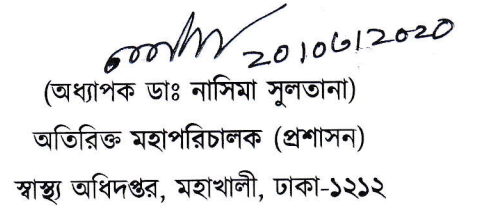 ২০।০৩।২০২০
(অধ্যাপক ডাঃ নাসিমা সুলতানা)
অতিরিক্ত মহাপরিচালক (প্রশাসন)
স্বাস্থ্য অধিদপ্তর, মহাখালী, ঢাকা-১২১২